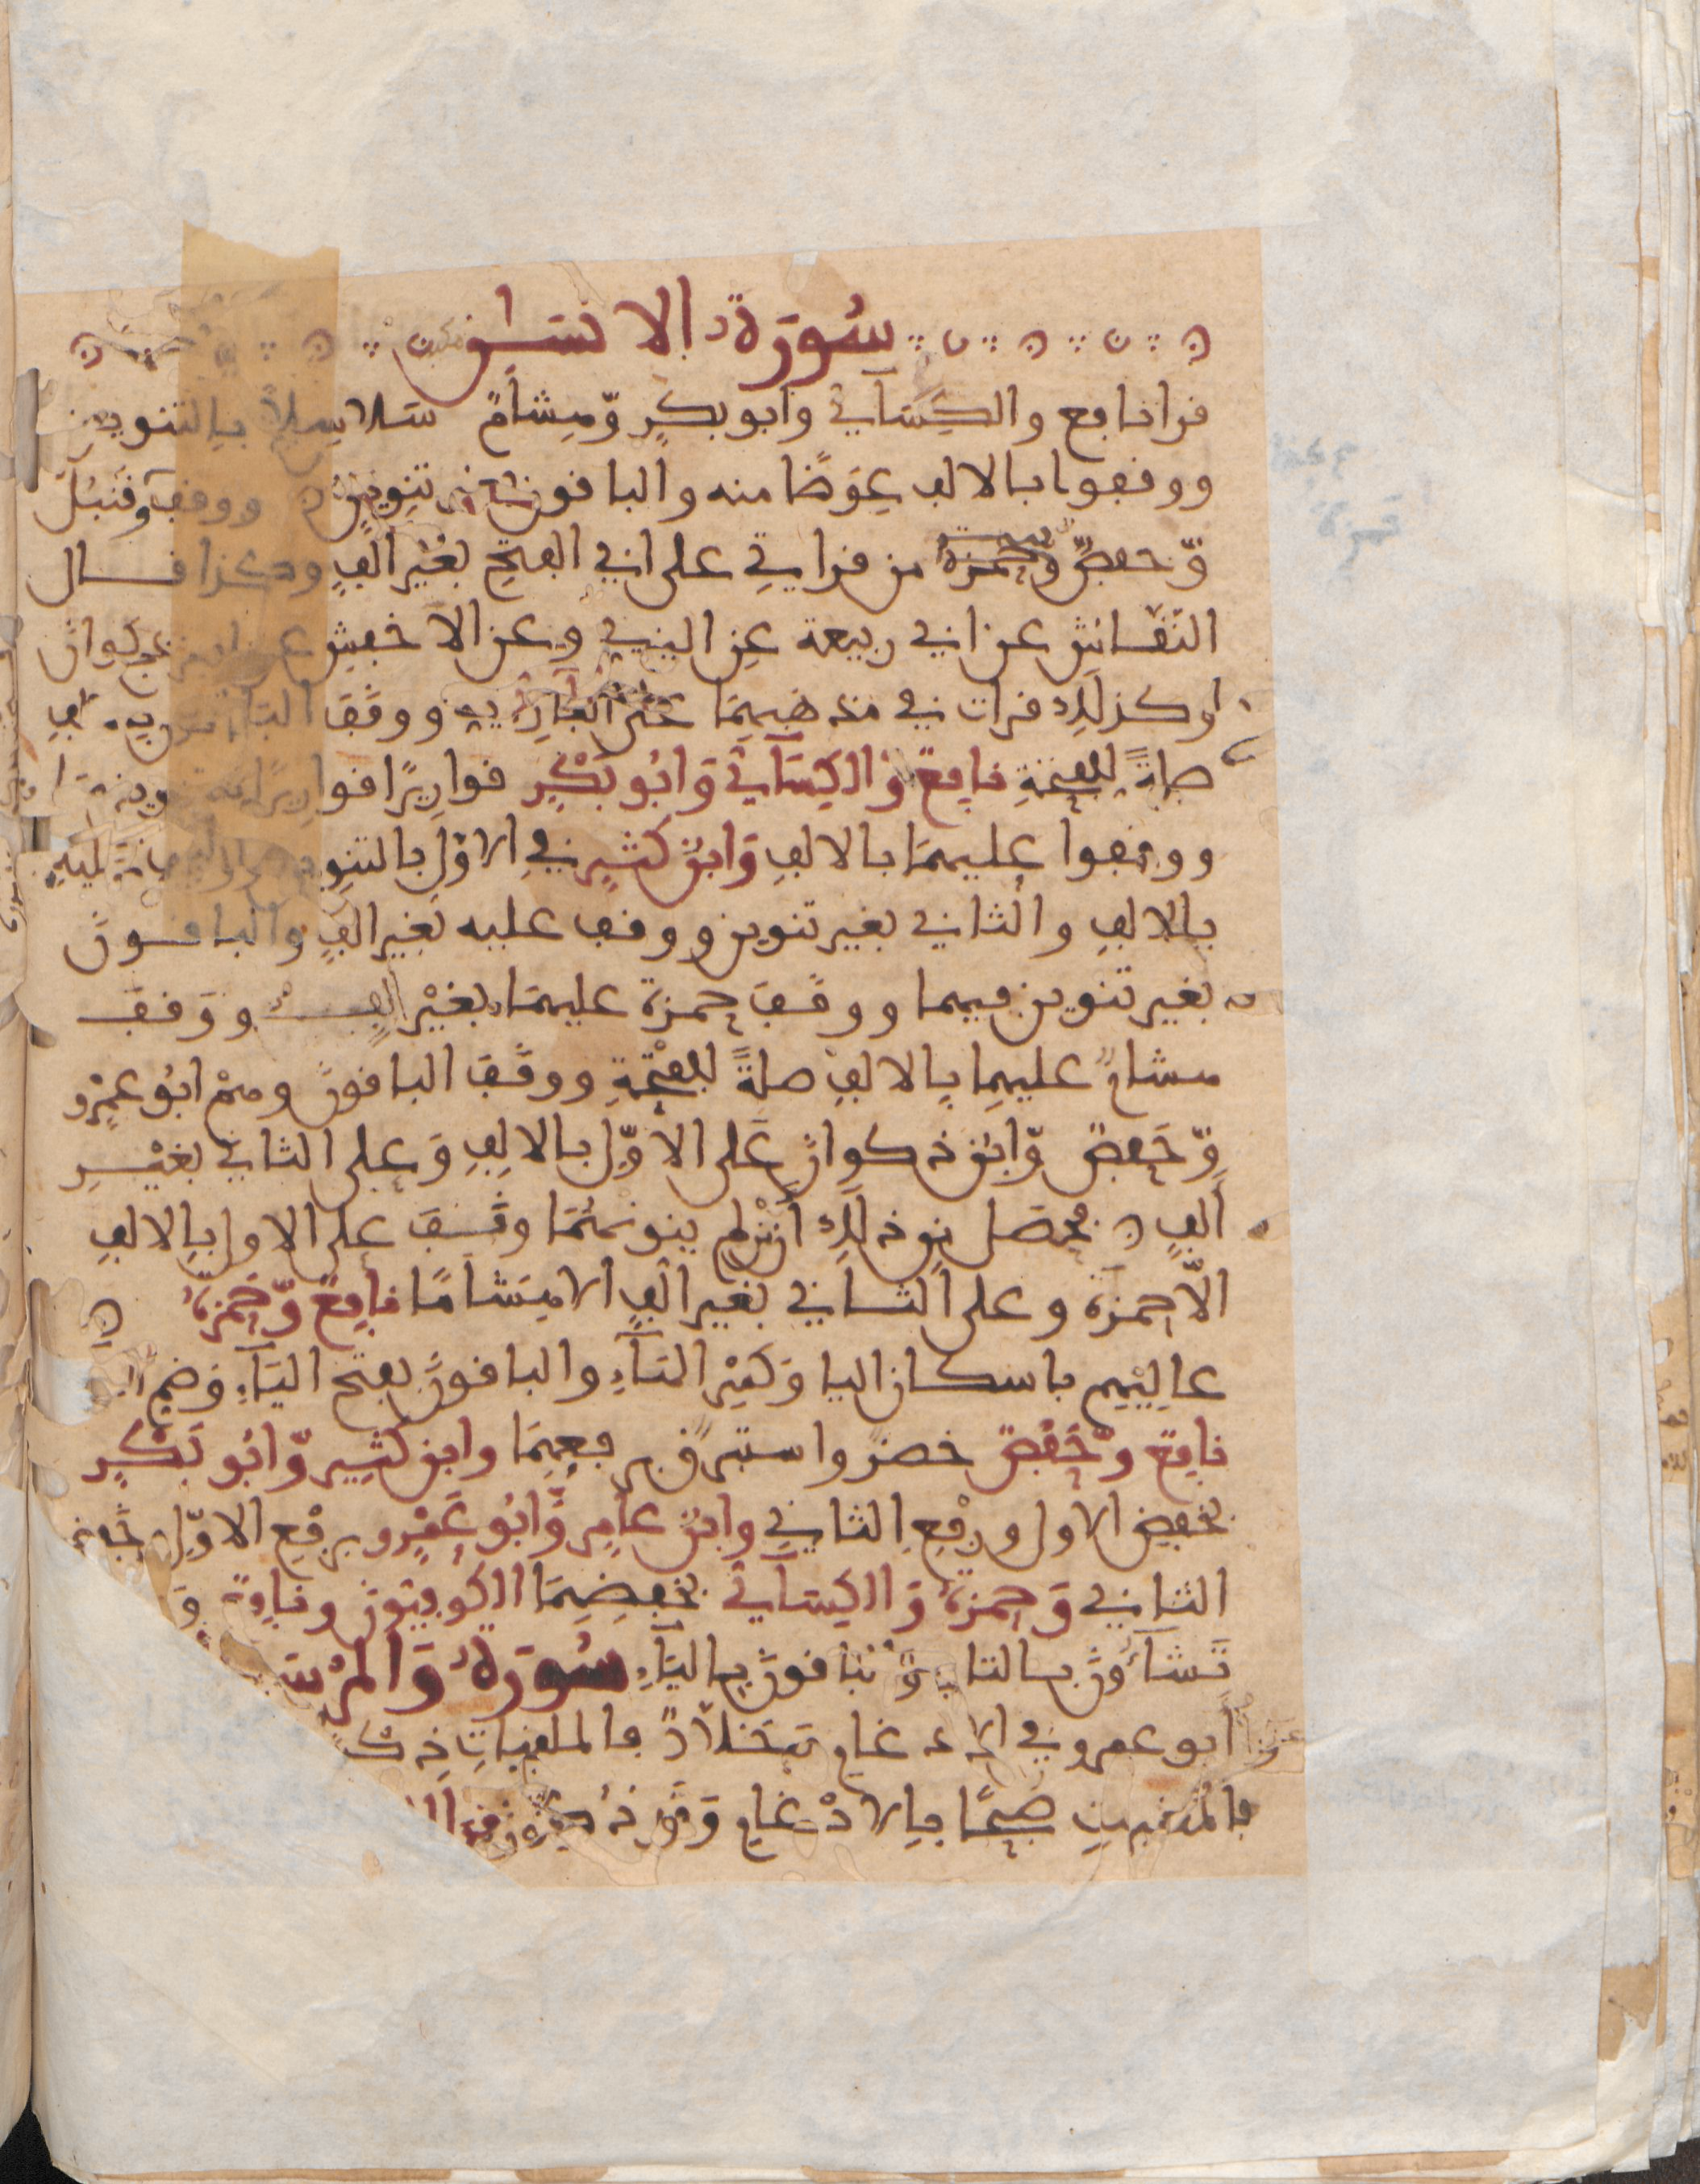 سُورَةُ الانسَٰن
قرا نافع والكِسَآئي وابو بكرٍ وّهِشامٌ سَلاسِلاً بالتنوين
ووقفوا بالالف عِوَضًا منه والباقون بغير تنوينٍ ووقف قُنبُلٌ
وّحفصٌ وّحمزة من قراتي على ابي الفتح بغَيْر الفٍ وكذا قال
النقاش عن ابي ربيعة عن البزي وعن الاخفش عن ابن ذكوان
وكذلك قرات في مذهبيهما على الفارِسي ووقف الباقون بالف
صلةً للفتحةِ نافِعٌ وَالكِسَآئي وَابُو بَكْرٍ قواريرًا قواريرًا بتنوينهما
ووقفوا عليهمَا بالالفِ وَابنُ كثيرٍ في الاوّل بالتنوين ووقف عليهِ
بالالفِ والثاني بغير تنوين ووقف عليه بغير الفٍ والباقون
بغير تنوين فيهما ووقَف حمزة عليهمَا بغَيْر الفٍ ووَقف
هشامٌ عليهِما بالالفِ صلةً للفتْحةِ ووقَف الباقون وهمْ ابُو عمْرٍو
وّحَفصٌ وّابن ذكوان عَلى الاوّل بالالِفِ وَعلى الثاني بغيْرِ
ألفٍ فحصَل من ذلك أن من لم ينونهُمَا وقَف على الاول بالالف
الّا حمزة وعلى الثاني بغير الفٍ الا هشَامًا نافِعٌ وّحَمزةُ
عالِيْهِم باسكان اليا وَكَسْر الهَآءِ والباقون بفتح اليَآءِ وَضم
نافِعٌ وّحَفْصٌ خضرٌ واستبرقٌ برفعِهِمَا وابن كثِيرٍ وّابُو بَكْرٍ
بخفض الاول ورفعِ الثاني وابنُ عامِرٍ وَّابُو عَمْرٍو برفْعِ الاوّل
الثاني وَحمزةُ وَالكِسَآئي بخفضِهِمَا الكُوفيّون ونافِعٌ
تَشَآءُون بالتا والباقون باليَآءِ سُورَةُ وَالمُرْسَ
أبو عمرو في الادغام وَخَلّادٌ فالملقيات ذك
فالمغيرات صُبحًا بالادْغام